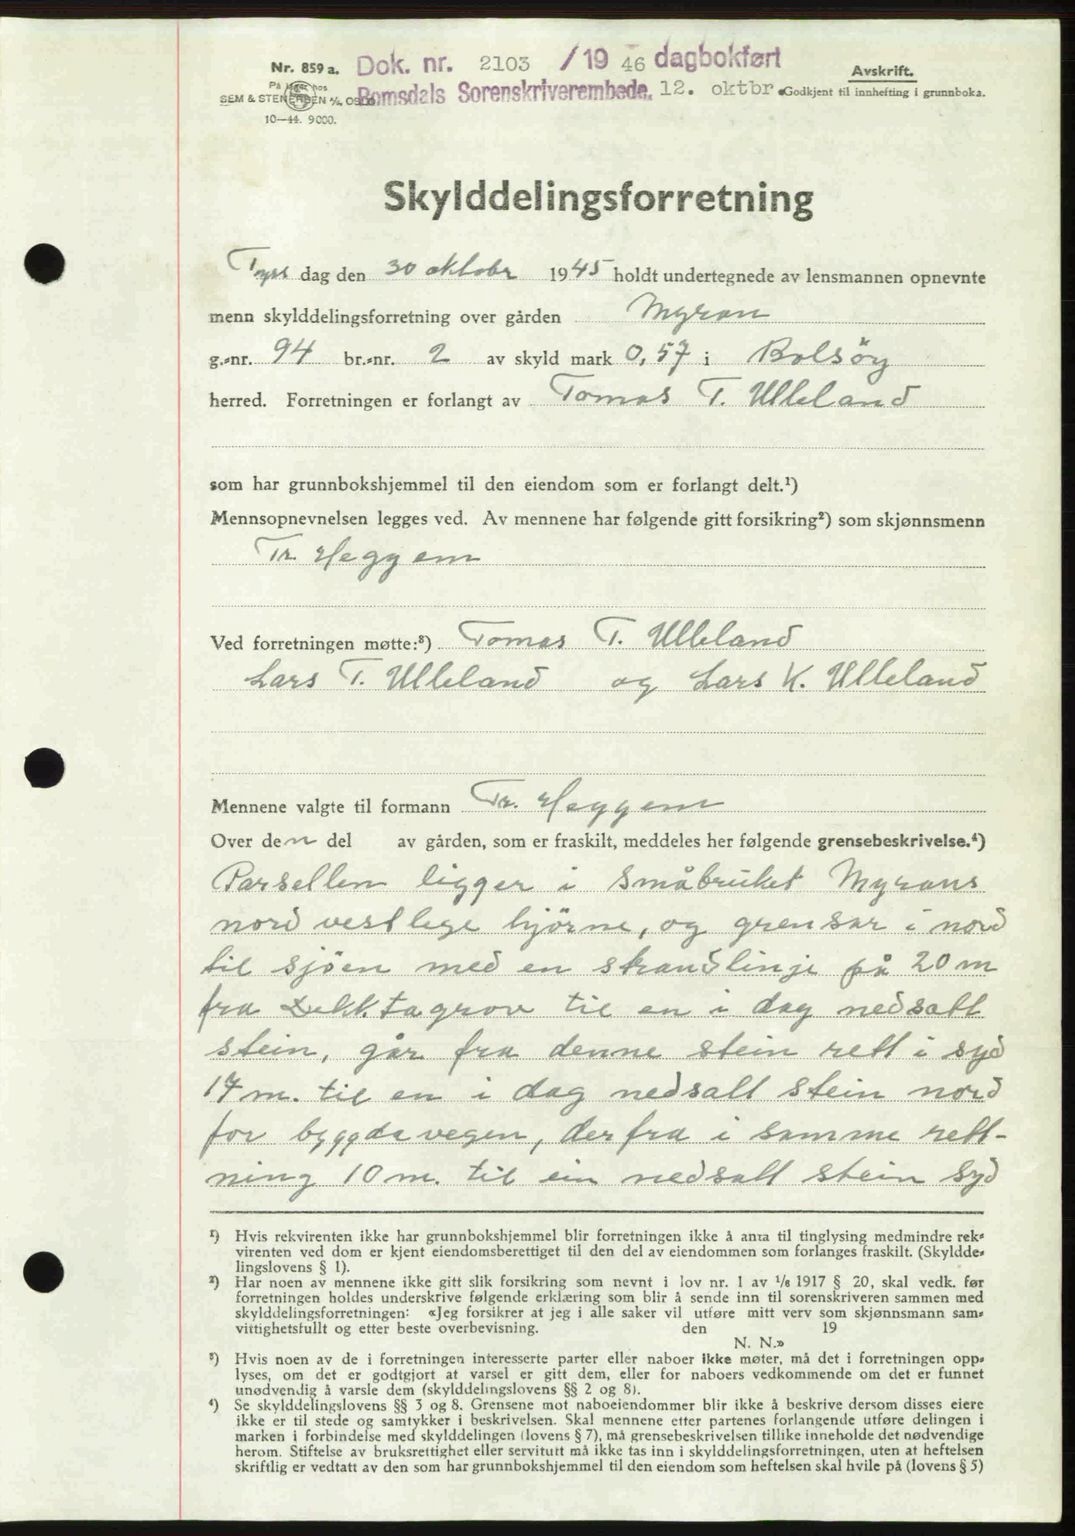 Nr. 859 a.
Dok. nr. 2103 /19 46 dagbokført
Avskrift.
På lager hos
SEM & STENERSEN A/S, OSLO
Romsdals Sorenskriverembede, 12. oktbr.
Godkjent til innhefting i grunnboka.
10—44. 9000.
Skylddelingsforretning
Tysdag den 30 oktobr 1945 holdt undertegnede av lensmannen opnevnte
menn skylddelingsforretning over gården Myran
g.-nr. 94 br.-nr. 2 av skyld mark 0,57 i Bolsöy
herred. Forretningen er forlangt av Tomas T. Ulleland
som har grunnbokshjemmel til den eiendom som er forlangt delt.¹)
Mennsopnevnelsen legges ved. Av mennene har følgende gitt forsikring²) som skjønnsmenn
Tr. Heggem
Ved forretningen møtte:³) Tomas T. Ulleland
Lars T. Ulleland og Lars K. Ulleland
Mennene valgte til formann Tr. Heggem
Over den del av gården, som er fraskilt, meddeles her følgende grensebeskrivelse.⁴)
Parsellen ligger i småbruket Myrans
nordvestlege hjörne, og grensar i nord
til sjöen med en strandlinje på 20 m
fra tagrov til en i dag nedsatt
stein, går fra denne stein rett i syd
17 m. til en i dag nedsatt stein nord
for bygdevegen, derfra i samme rett-
ning 10 m. til ein nedsatt stein syd
¹) Hvis rekvirenten ikke har grunnbokshjemmel blir forretningen ikke å anta til tinglysing medmindre rek-
virenten ved dom er kjent eiendomsberettiget til den del av eiendommen som forlanges fraskilt. (Skyldde-
lingslovens § 1).
²) Har noen av mennene ikke gitt slik forsikring som nevnt i lov nr. 1 av 1/6 1917 § 20, skal vedk. før
forretningen holdes underskrive følgende erklæring som blir å sende inn til sorenskriveren sammen med
skylddelingsforretningen: «Jeg forsikrer at jeg i alle saker vil utføre mitt verv som skjønnsmann sam-
vittighetsfullt og etter beste overbevisning. den 19
N. N.»
³) Hvis noen av de i forretningen interesserte parter eller naboer ikke møter, må det i forretningen opp-
lyses, om det er godtgjort at varsel er gitt dem, eller for naboers vedkommende om det er funnet
unødvendig å varsle dem (skylddelingslovens §§ 2 og 8).
⁴) Se skylddelingslovens §§ 3 og 8. Grensene mot naboeiendommer blir ikke å beskrive dersom disses eiere
ikke er til stede og samtykker i beskrivelsen. Skal mennene etter partenes forlangende utføre delingen i
marken i forbindelse med skylddelingen (lovens § 7), må grensebeskrivelsen tillike inneholde det nødvendige
herom. Stiftelse av bruksrettighet eller servitutt må ikke tas inn i skylddelingsforretningen, uten at heftelsen
skriftlig er vedtatt av den som har grunnbokshjemmel til den eiendom som heftelsen skal hvile på (lovens § 5)